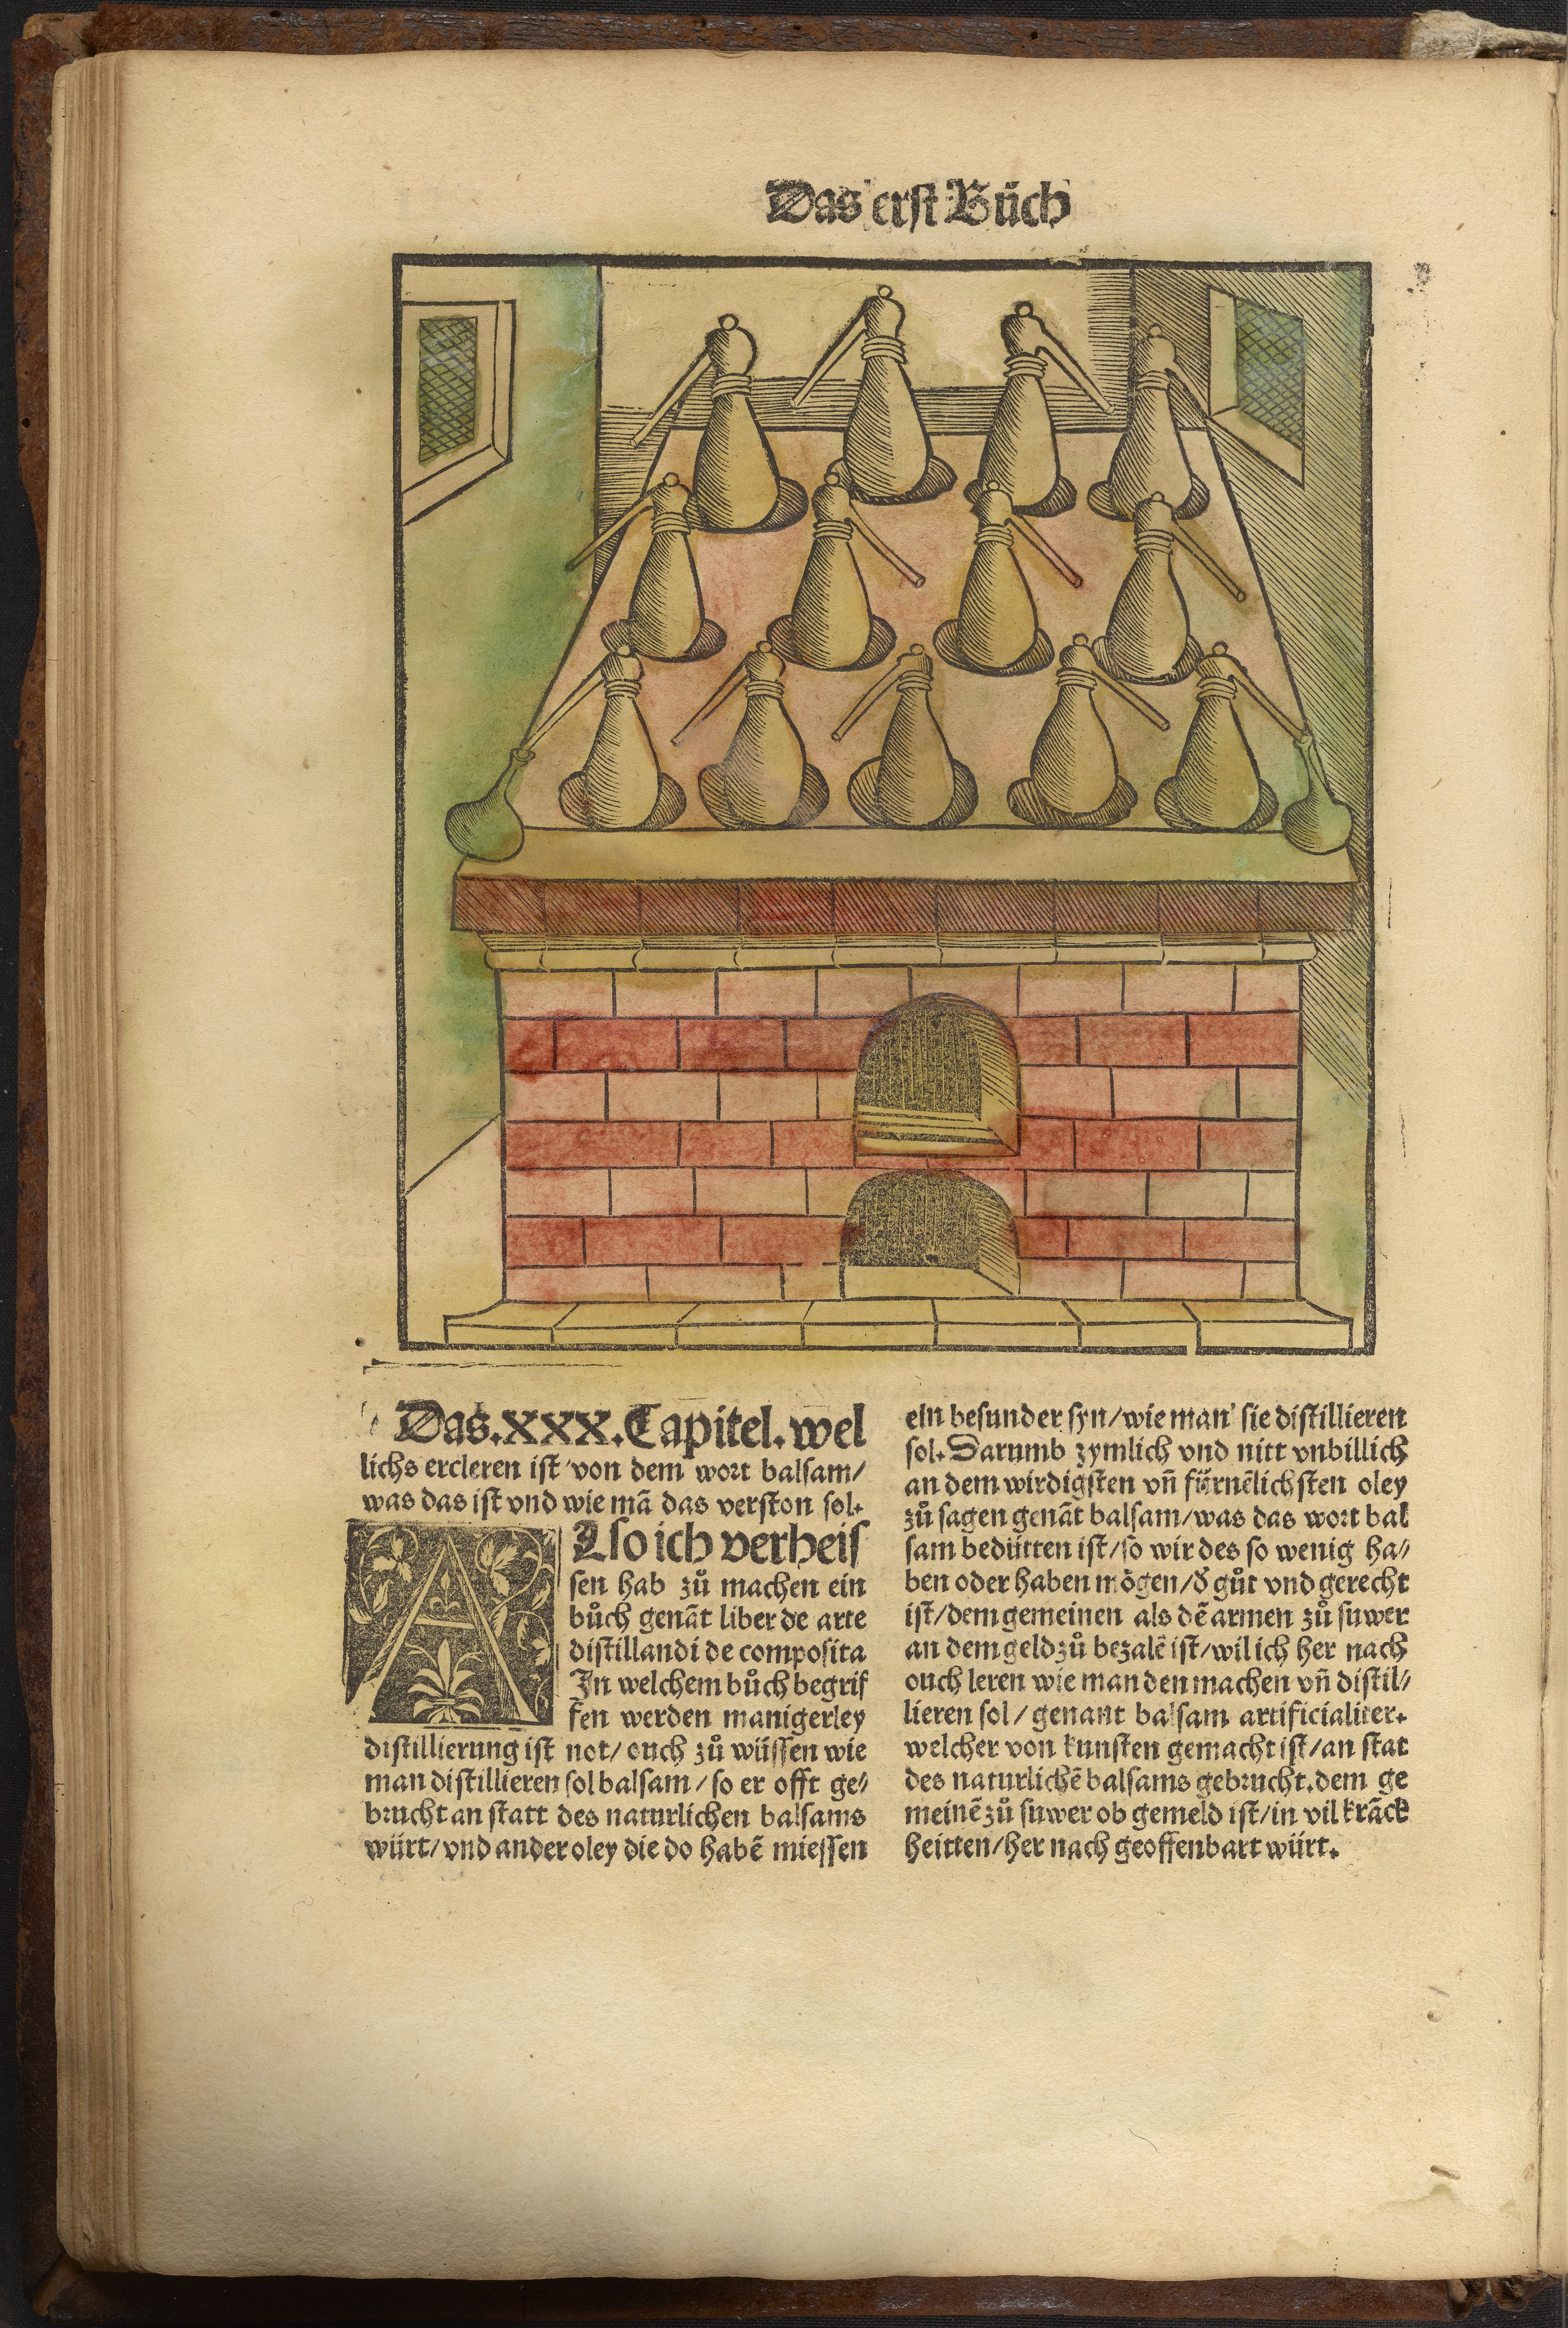 Das erst Bůch
Das.XXX.Capitel.wel
lichs ercleren ist von dem wort balsam/
was das ist vnd wie mā das verston sol.
Also ich verheis
sen hab zů machen ein
bůch genāt liber de arte
distillandi de composita
In welchem bůch begrif
fen werden manigerley
distillierung ist not/ouch zů wüssen wie
man distillieren sol balsam/so er offt ge⸗
brucht an statt des naturlichen balsams
würt/vnd ander oley die do habē miessen
ein besunder syn/wie man sie distillieren
sol.Darumb zymlich vnd nitt vnbillich
an dem wirdigsten vn̄ fürnēlichsten oley
zů sagen genāt balsam/was das wort bal
sam bedütten ist/so wir des so wenig ha⸗
ben oder haben mögen/d̕ gůt vnd gerecht
ist/dem gemeinen als dē armen zů suwer
an dem geld zů bezalē ist/wil ich her nach
ouch leren wie man den machen vn̄ distil⸗
lieren sol/genant balsam artificialiter.
welcher von kunsten gemacht ist/an stat
des naturlichē balsams gebrucht.dem ge
meinē zů suwer ob gemeld ist/in vil krāck
heitten/her nach geoffenbart würt.